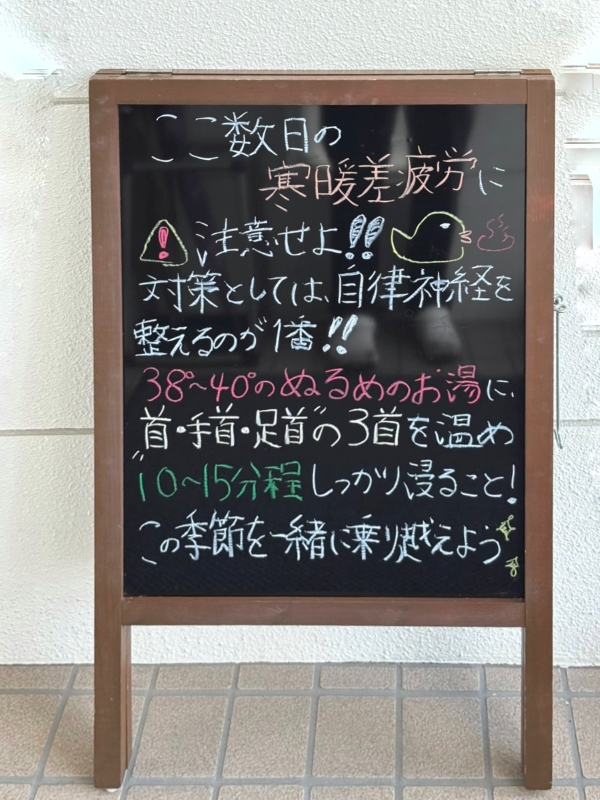 ここ数日の
寒暖差疲労に
注意せよ!!
対策としては、自律神経を
整えるのが1番!!
38°~40°のぬるめのお湯に、
"首・手首・足首"の3首を温め
10~15分程しっかり浸ること!
この季節を一緒に乗り越えよう